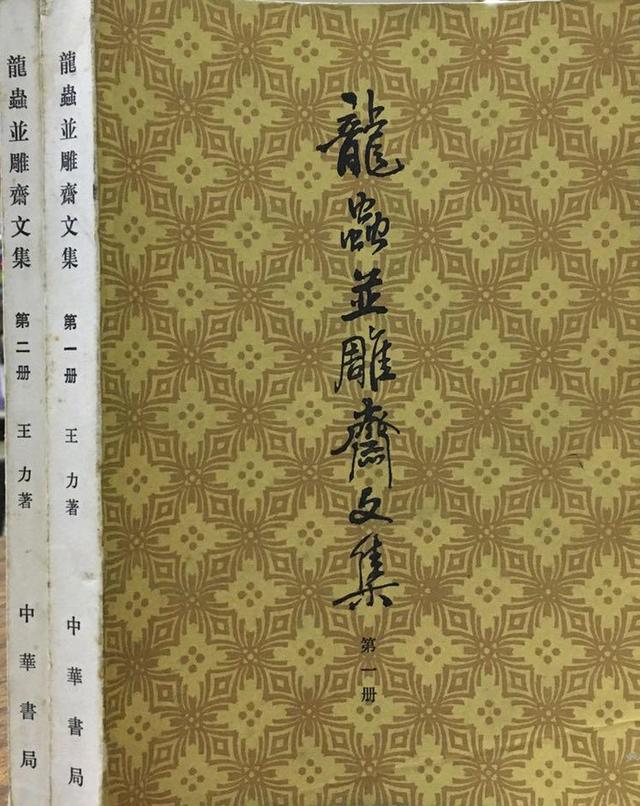 龍蟲並雕齋文集
第一册
龍蟲並雕齋文集 第一册 王力著 中華書局
龍蟲並雕齋文集 第二册 王力著 中華書局